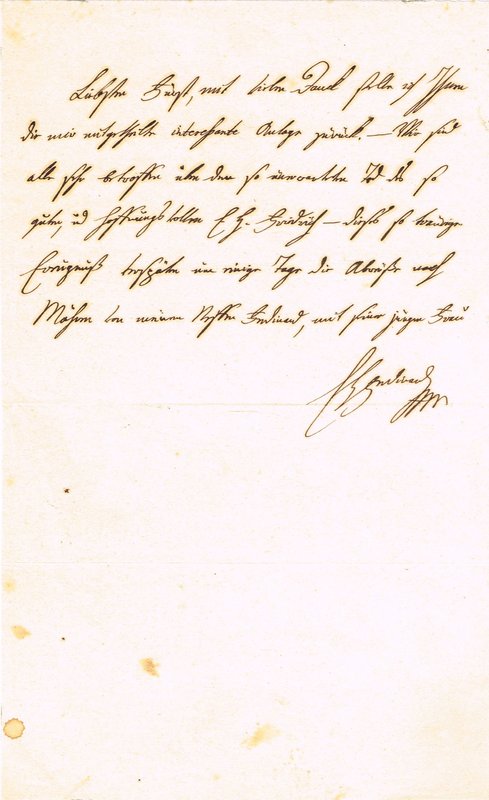 Liebster Fürst, mit vielem Dank stelle ich Ihnen
die mir mitgetheilte interessante Anlage zurück. – Wir sind
alle sehr betroffen über den so unerwarteten Tod des so
guten, und hoffnungsvollen E. H. Friedrich – dieses so traurige
Ereigniß verspätet um einige Tage die Abreise nach
Mähren von meinem Neffen Ferdinand, mit seiner jungen Frau
Ferdinand